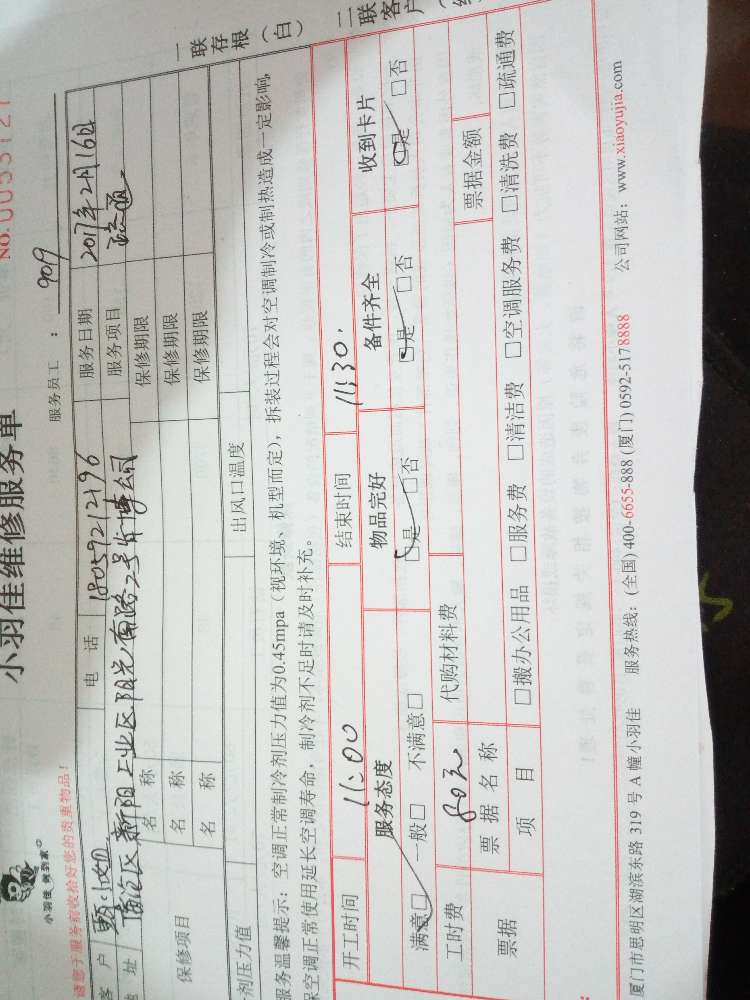 小羽佳维修服务单
NO.0053121
小羽佳 爽到家
请您于服务前收拾好您的贵重物品!
服务员工 : 909
客 户 小姐 电 话 18059212196 服务日期 2017年2月16日
地 址 海沧区新阳工业区阳光南路2号 公司 服务项目 疏通
保修项目 名 称 保修期限
名 称 保修期限
名 称 保修期限
剂压力值 出风口温度
服务温馨提示: 空调正常制冷剂压力值为0.45mpa (视环境、机型而定), 拆装过程会对空调制冷或制热造成一定影响,
保空调正常使用延长空调寿命, 制冷剂不足时请及时补充。
开工时间 11:00 结束时间 11:30.
服务态度 物品完好 备件齐全 收到卡片
满意□ 一般□ 不满意□ □是 □否 □是 □否 □是 □否
工时费 80元 代购材料费
票据 票 据 名 称 票据金额
项 目 □搬办公用品 □服务费 □清洁费 □空调服务费 □清洗费 □疏通费
一联存根(白)
二联客户
厦门市思明区湖滨东路 319 号 A 幢小羽佳 服务热线: (全国) 400-6655-888 (厦门) 0592-5178888 公司网站: www.xiaoyujia.com